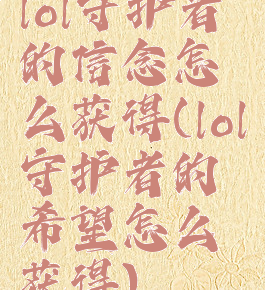 lol守护者
的信念怎
么获得(lol
守护者的
希望怎么
获得)